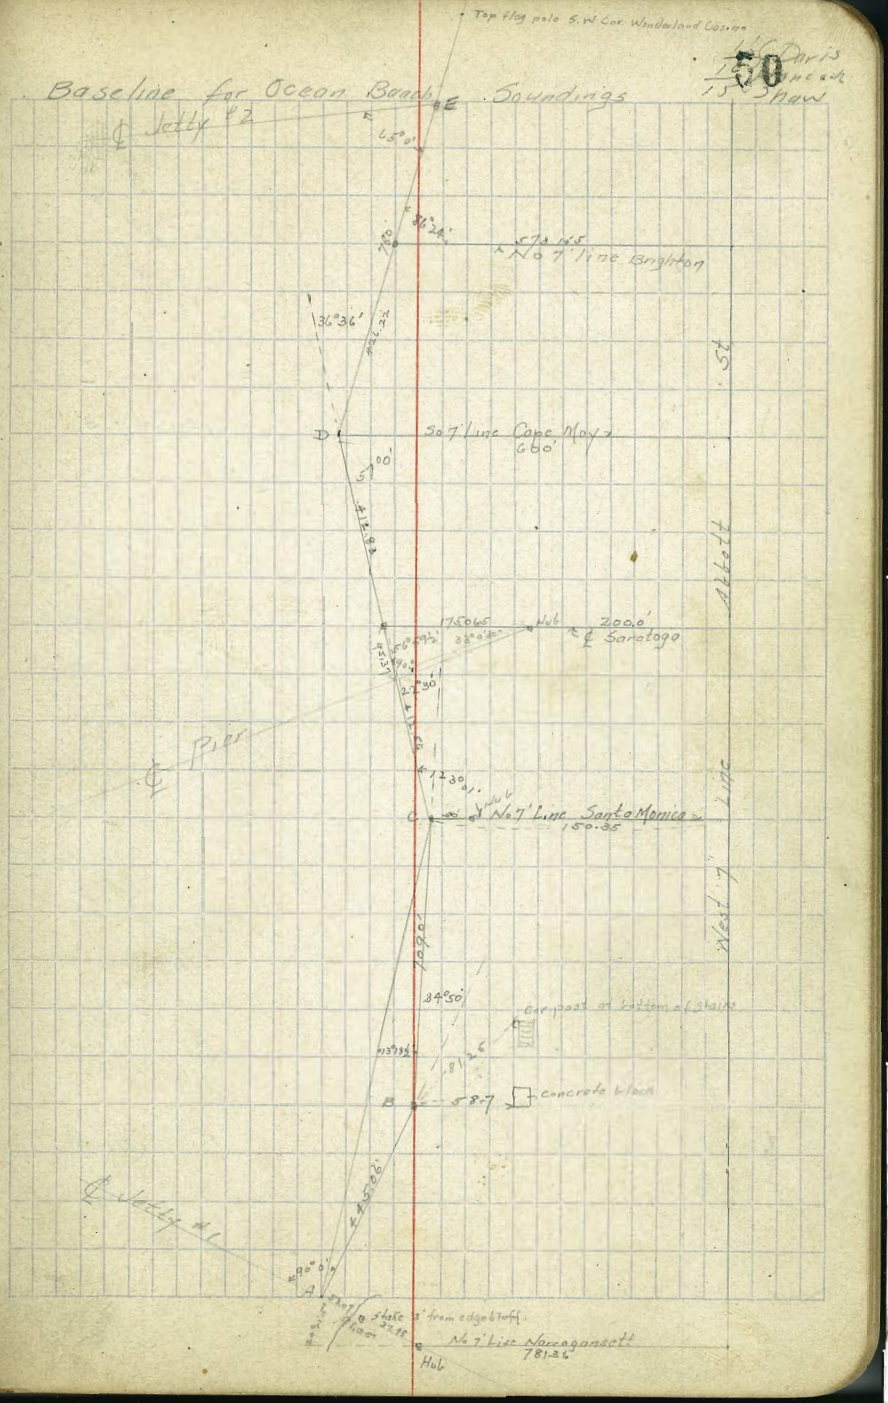 Top flag pole S.W Cor. Wonderland Casino
Davis
50
Shaw
Baseline for Ocean Beach Soundings
E
℄ Jetty #2
65°0'
86°24'
780
578.165
No 7' line Brighton
36°36'
426.22
St
D
So 7' Line Cape May
660'
51°00'
412.82
Abbott
175.065
Hub
200.0'
℄ Saratoga
56°59½'
33°0'30"
95.37
90°
27°30'
℄ Pier
123°01'
Hub
C
No 7' Line Santa Monica
150.35
Line
7'
West
709.0'
84°50'
Cor post at bottom of Stairs
13°19½'
81.26
B
58.7
concrete block
445.06'
℄ Jetty #1
90°0'
A
Stake 3' from edge bluff
37.98
No 7' Line Narragansett
781.36
Hub